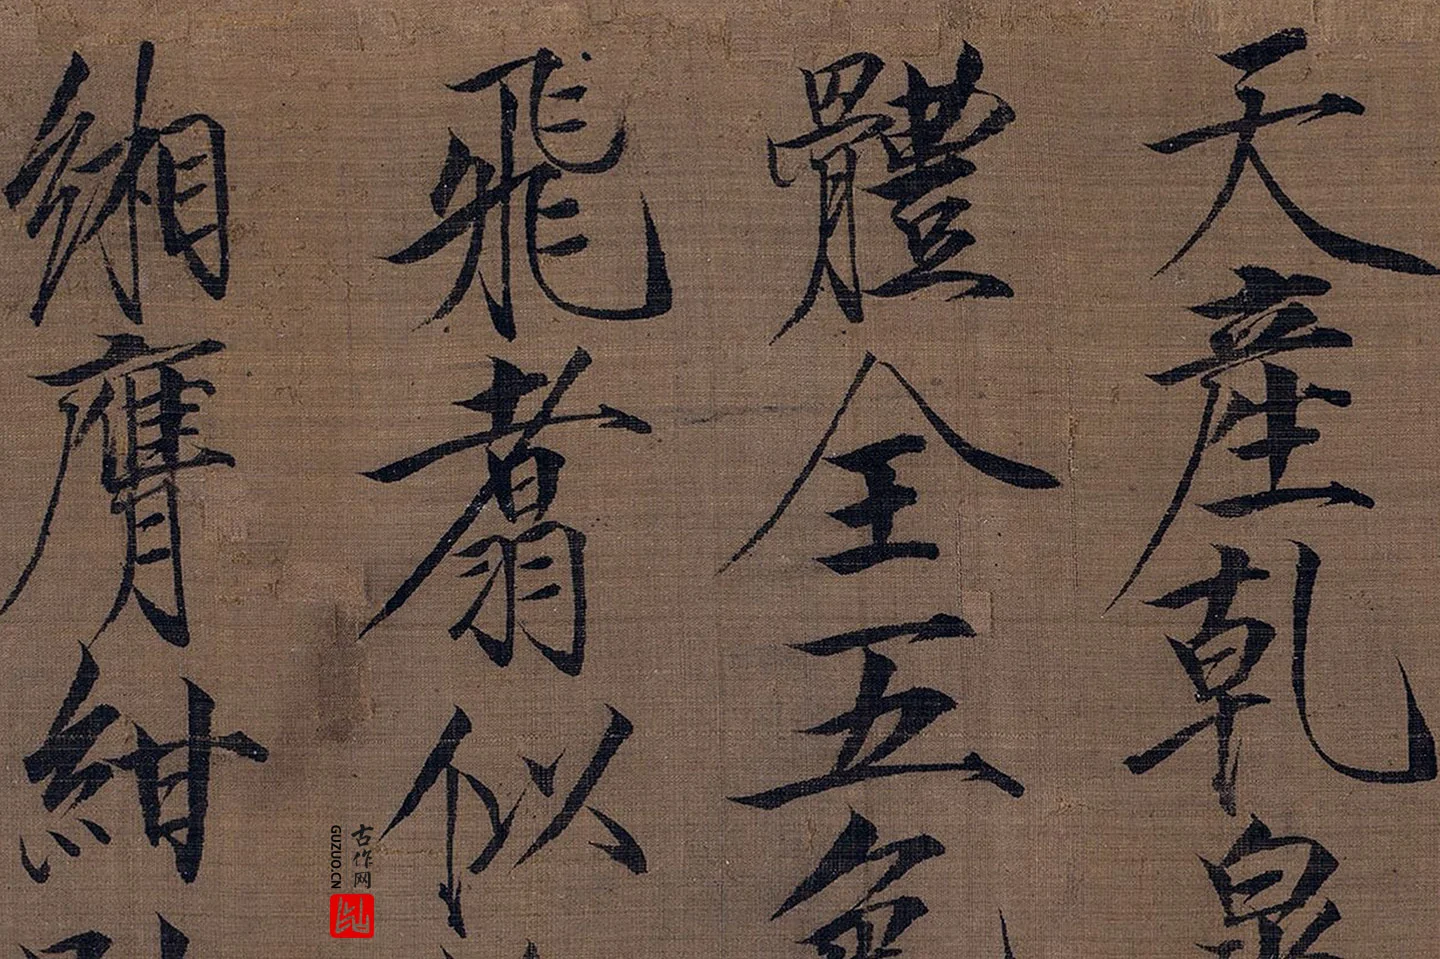 天產乾皋
體全五色
飛翥似
緗膺紺
古作网
GUZUO.CN